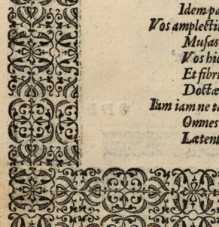 Idem pa
Vos amplecti
Musas
Vos hi
Et fibri
Doctæ
Iam iam ne t
Omnes
Læten